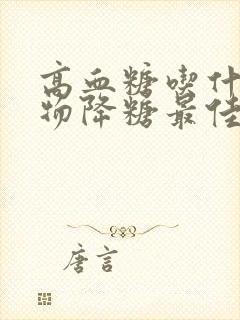 高血糖喫什
物降糖最佳
唐言